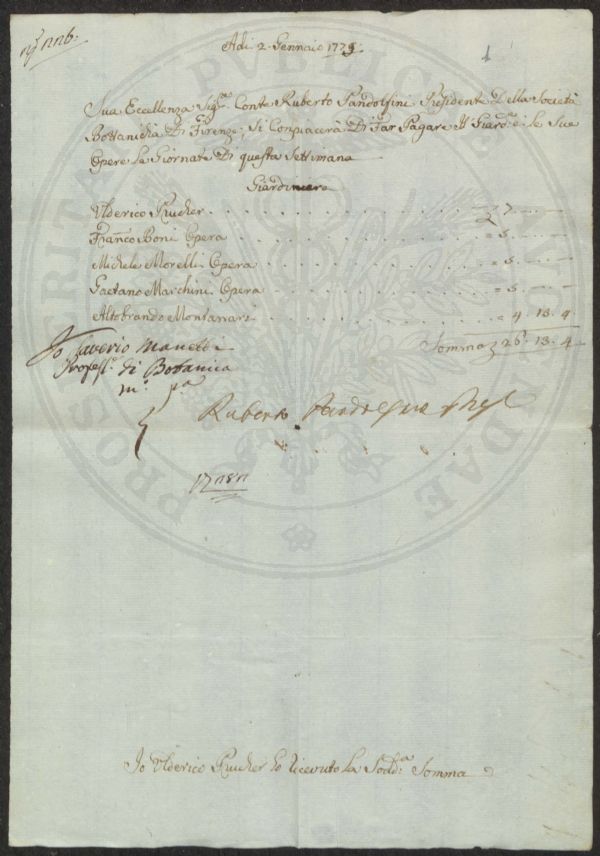 Adi 2. Gennaio 1779.
1
Sua Eccellenza Sig.re Conte Ruberto Pandolfini Presidente Della Società
Bottanicha Di Firenze; Si Conpiacerà Di Far Pagare Il Giard.re e le Sue
Opere le Giornate Di questa Settimana
Giardiniere
Ulderico Prucher 7
Franco Boni Opera = 5
Michele Morelli Opera = 5
Gaetano Marchini Opera = 5
Altobrando Montanari = 4. 13. 4
Somma 26. 13. 4
Io Saverio Manetti
Profess.e di Botanica
m.o p.a
Ruberto Pandolfini
Io Ulderico Prucher ho ricevuto la Sodd.a Somma
PROSPERITATI PVBLICAE AVGENDAE